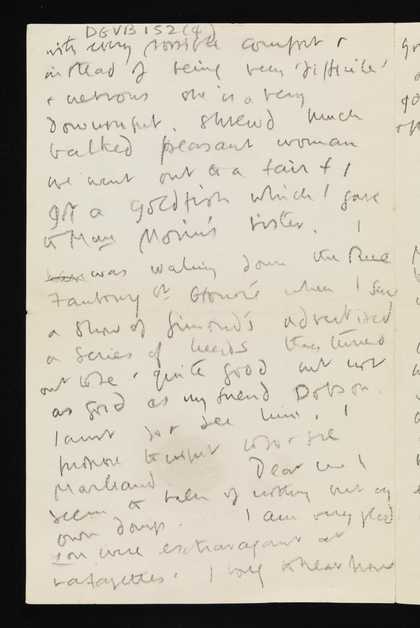 DGVB 152 (4)
with every possible comfort &
instead of being very 'difficile'
& nervous she is a very
downright, shrewd much
talked peasant woman
we went out to a fair & I
got a goldfish which I gave
to Mme Morin's sister. I
was walking down the Rue
Faubourg St Honoré when I saw
a show of Simond's advertised
a series of heads they turned
out to be, quite good but not
as good as my friend Dobson.
I must go & see him. I
propose to
Dear me I
seem to talk of nothing but my
own doings. I am very glad
you were extravagant at
Lafayettes. I long to hear how